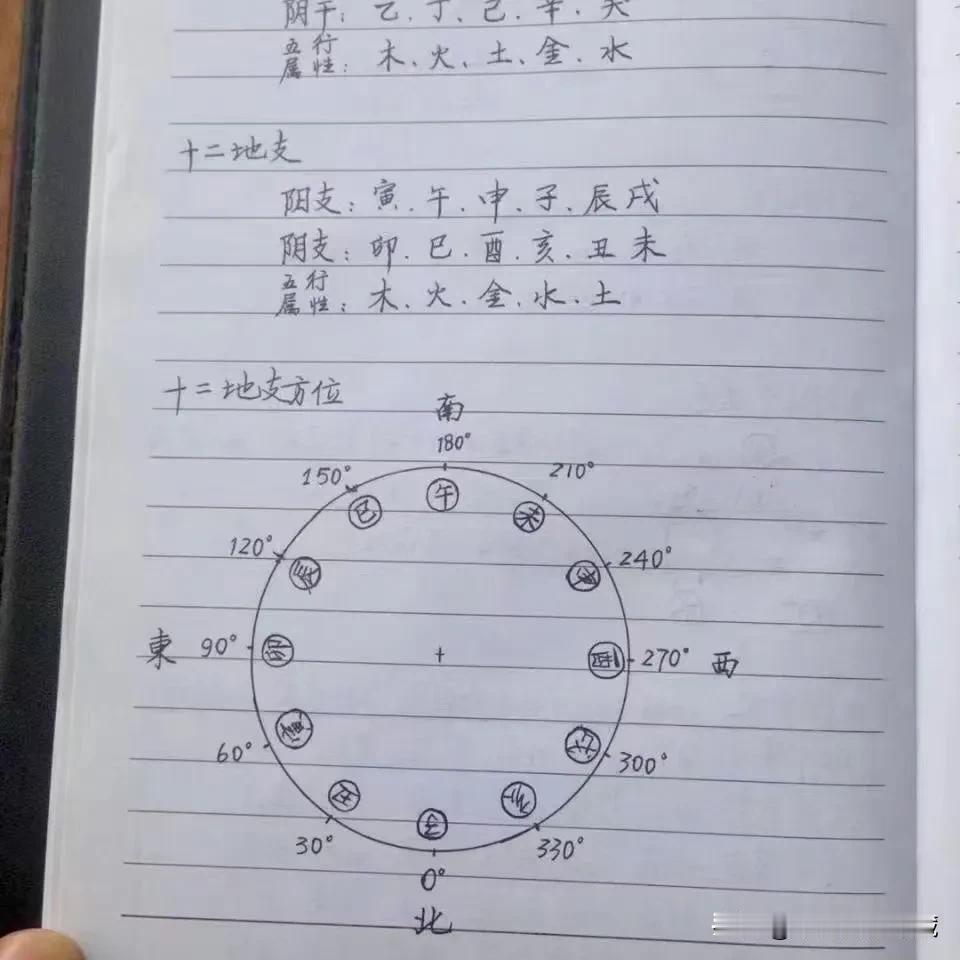 阴干：乙、丁、己、辛、癸
五行属性：木、火、土、金、水
十二地支
阳支：寅、午、申、子、辰戌
阴支：卯、巳、酉、亥、丑未
五行属性：木、火、金、水、土
十二地支方位
南
180°
150° 210°
巳 午 未
120° 240°
辰 申
東 90° 卯 酉 270° 西
寅 戌
60° 300°
丑 子 亥
30° 330°
0°
北